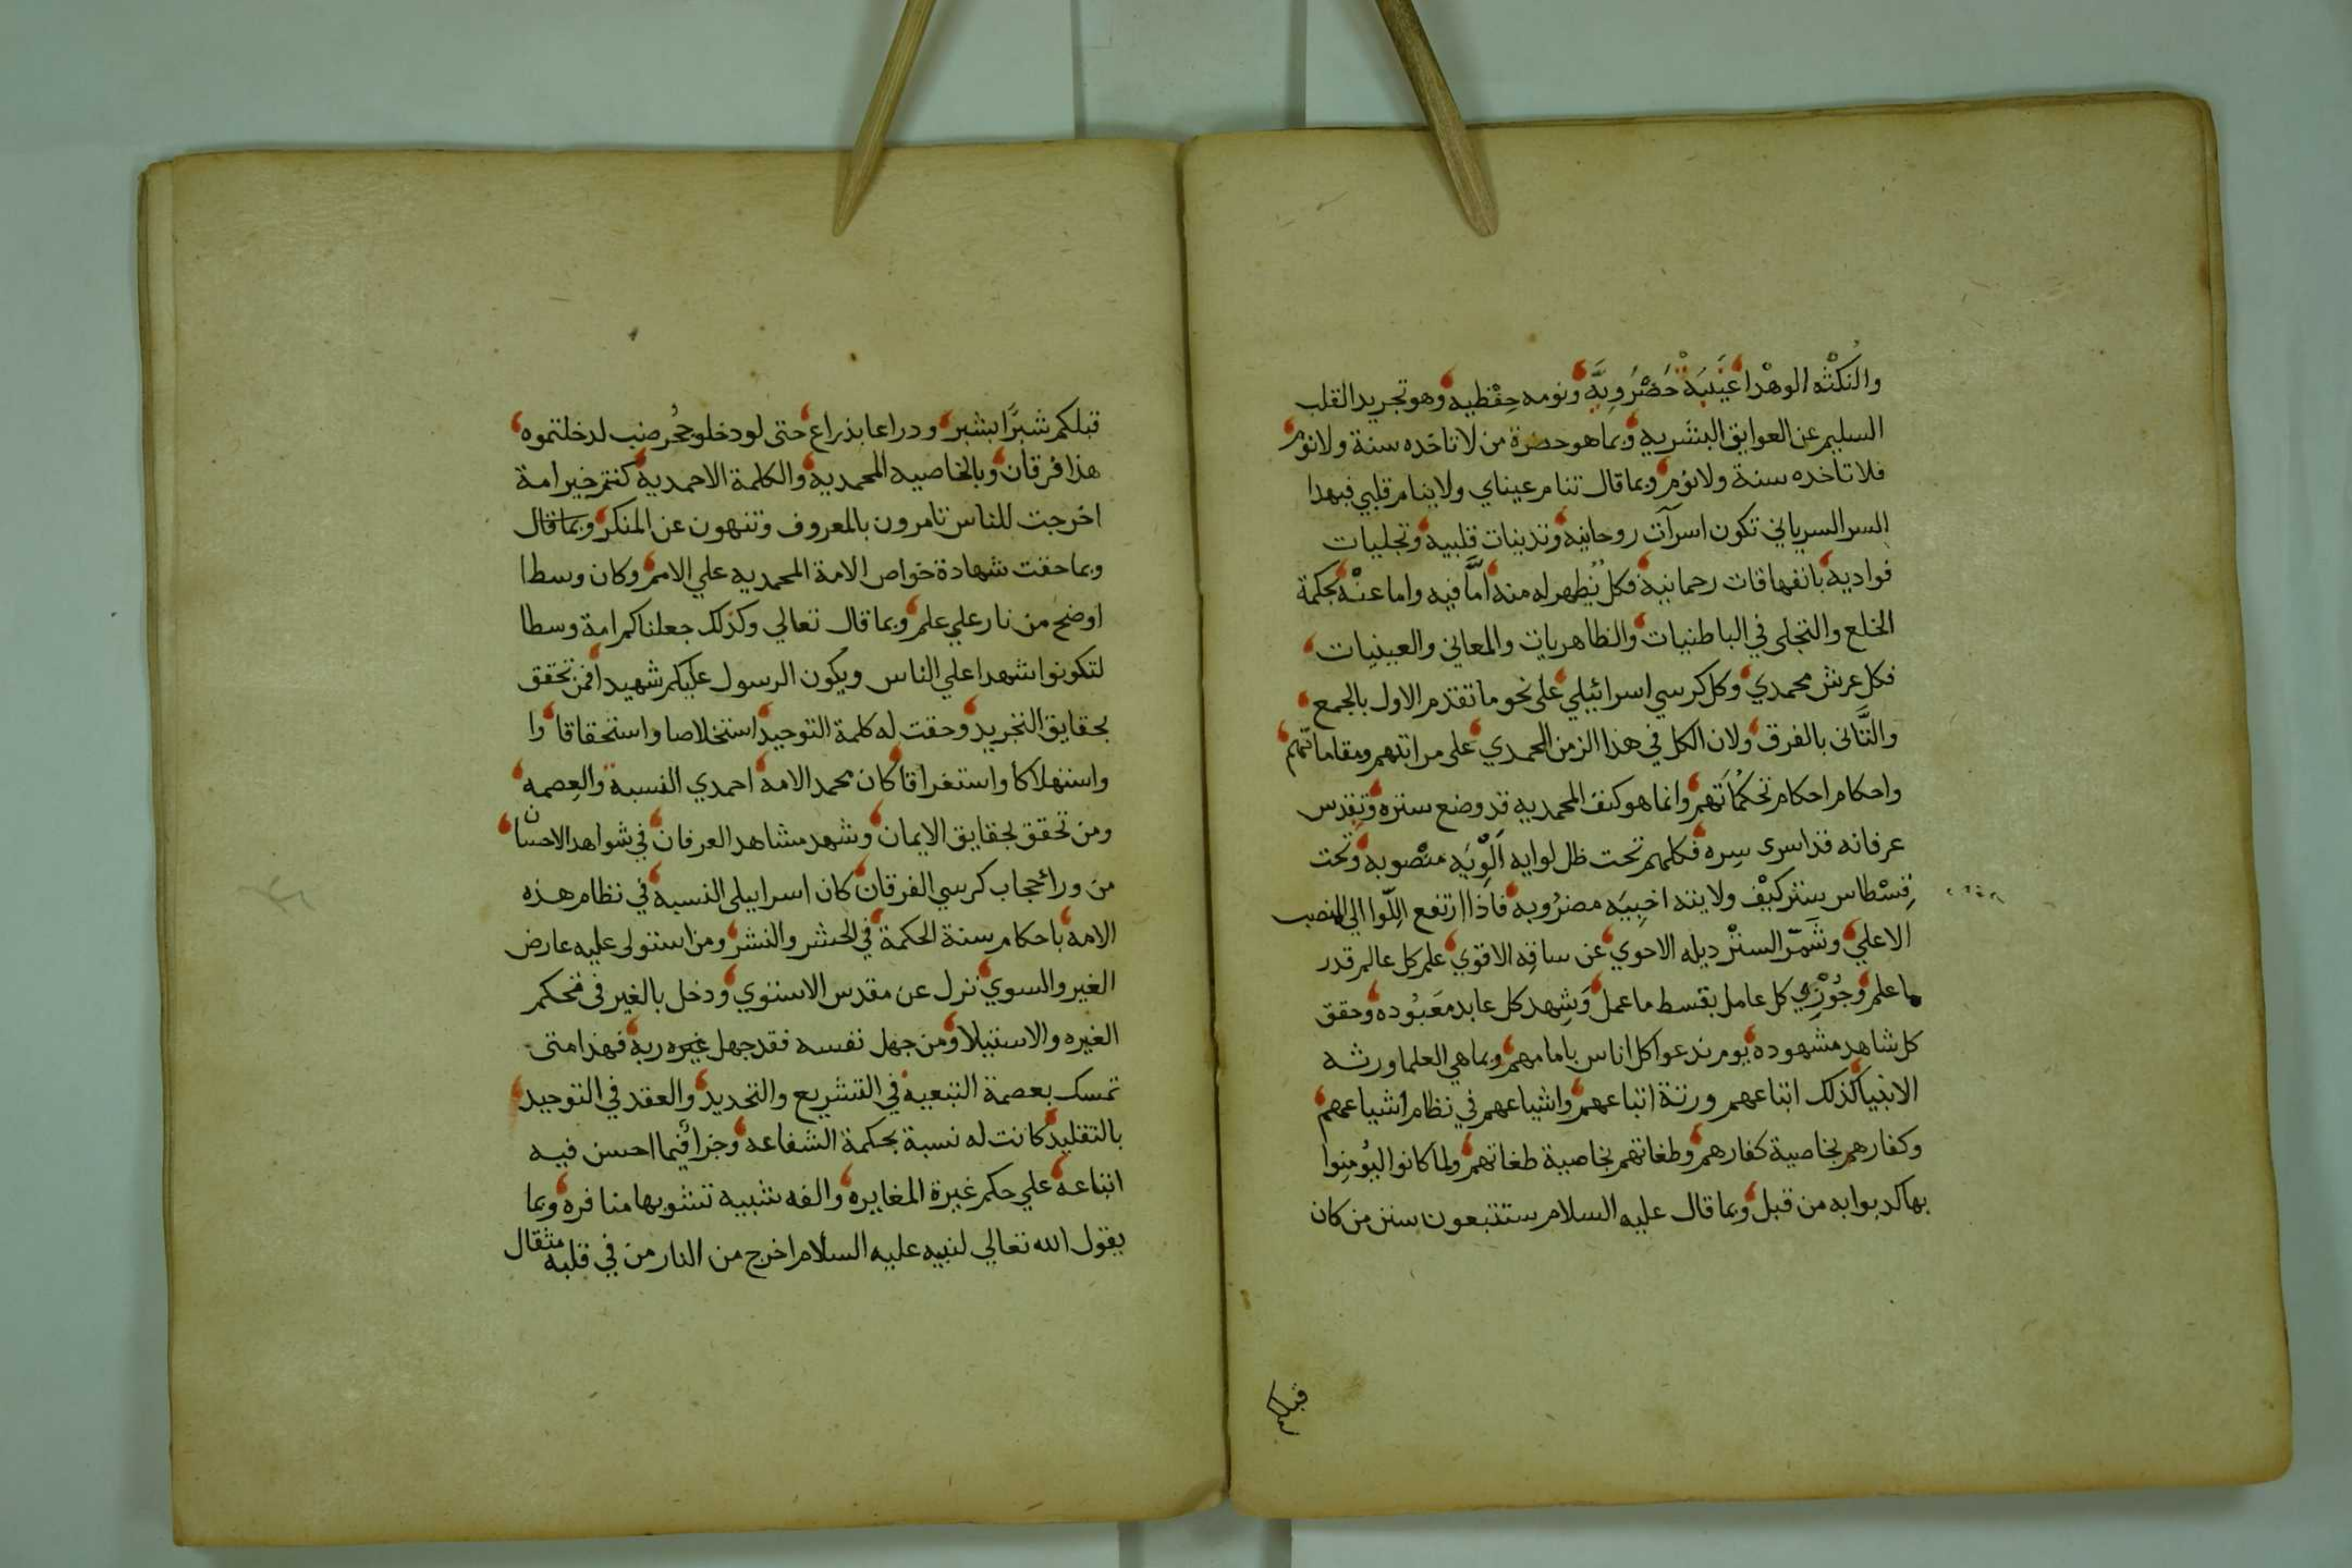 والنكثه الوهدا غيبية حضروية ونومه حفظيه وهو تجريد القلب
السليم عن العوايق البشريه وبما هو حضرة من لا تاخده سنة ولا نوم
فلا تاخده سنة ولا نوم وبما قال تنام عيناي ولا ينام قلبي فبهدا
السر السرياني تكون اسرآت روحانية وتدنيات قلبيه وتجليات
فواديه بانفهاقات رحمانية فكل يُظهر له منه امّا فيه واما عنه بحكمة
الخلع والتجلى في الباطنيات والظاهريات والمعاني والعينيات
فكل عرش محمدي وكل كرسي اسرائيلي على نحو ما تقدم الاول بالجمع
والثَّانى بالفرق ولان الكل في هذا الزمن المحمدي على مراتبهم ومقاماتهم
واحكام احكام تحكماتهم وانما هو كنف المحمديه قد وضع ستره وتقدس
عرفانه قد اسرى سره فكلهم تحت ظل لوايه الْوِيَه منصوبه وتحت
قِسْطاس ستر كيْف ولايته اخبِيَه مضرُوبه فاذا ارتفع اللّوا الي المنصب
الاعلي وشَمّر الستر ديله الاحوي عن ساقه الاقوي علم كل عالم قدر
ما علم وجُوْزِي كل عامل بقسط ما عمل وَشِهد كل عابد مَعَبُوده وحقق
كل شاهد مشهوده يوم ندعوا كل اناس بامامهم وبما هي العلما ورثه
الانبيا كذلك اتباعهم ورثة اتباعهم واشياعهم في نظام اشياعهم
وكفارهم بخاصية كفارهم وطغاتهم بخاصية طغاتهم ولما كانوا ليُومِنوا
بما كدبوا به من قبل وبما قال عليه السلام ستتبعون سنن من كان
قبلكم
قبلكم شبرًا بشبر ودراعا بذراع حتى لو دخلو جُحر ضب لدخلتموه
هذا فرقان وبالخاصيه المحمدية والكلمة الاحمدية كنتم خير امة
اخرجت للناس تامرون بالمعروف وتنهون عن المنكر وبما قال
وبما حقت شهادة خواص الامة المحمديه علي الامم وكان وسطا
اوضح من نار علي علم وبما قال تعالي وكذلك جعلناكم امة وسطا
لتكونوا شهدا علي الناس ويكون الرسول عليكم شهيدا فمن تحقق
بحقايق التجريد وحقت له كلمة التوحيد استخلاصا واستحقاقا وا
واستهلاكا واستغراقا كان محمد الامة احمدي النسبة والعصمه
ومن تحقق بحقايق الايمان وشهد مشاهد العرفان في شواهد الاحسان
من ورائ حجاب كرسي الفرقان كان اسراييلى النسبه في نظام هذه
الامه باحكام سنة الحكمة في الحشر والنشر ومن استولى عليه عارض
الغير والسوي نزل عن مقدس الاستوي ودخل بالغير في محكم
الغيره والاستيلا ومن جهل نفسه فقد جهل غيره ربه فهذا متى
تمسك بعصمة التبعية في التشريع والتحديد والعقد في التوحيد
بالتقليد كانت له نسبة بحكمة الشفاعه وجزا فيما احسن فيه
اتباعه علي حكم غيرة المغايره والفه شبيه تشوبها منافره وبما
يقول الله تعالي لنبيه عليه السلام اخرج من النار من في قلبه مثقال